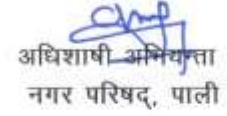 अधिशाषी अभियन्ता
नगर परिषद्, पाली